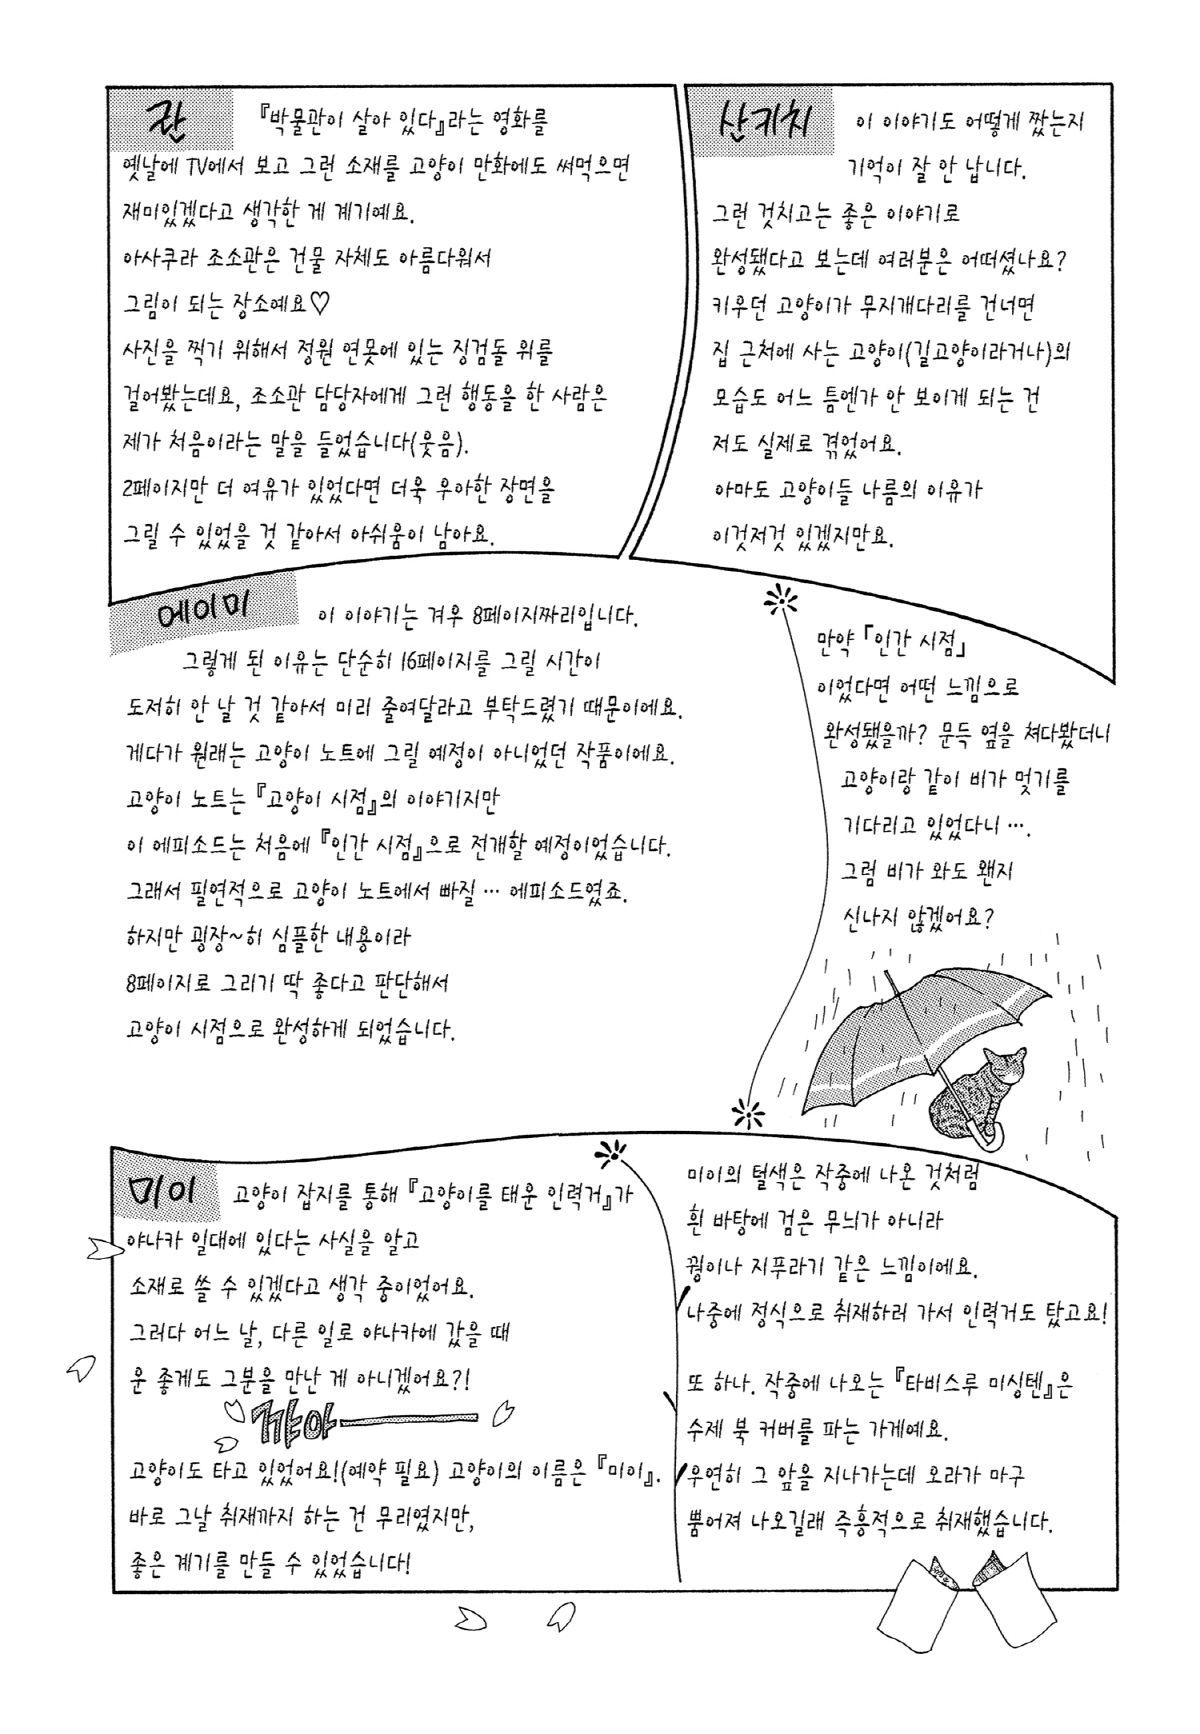 칸
『박물관이 살아 있다』라는 영화를
옛날에 TV에서 보고 그런 소재를 고양이 만화에도 써먹으면
재미있겠다고 생각한 게 계기예요.
아사쿠라 조소관은 건물 자체도 아름다워서
그림이 되는 장소예요♡
사진을 찍기 위해서 정원 연못에 있는 징검돌 위를
걸어봤는데요, 조소관 담당자에게 그런 행동을 한 사람은
제가 처음이라는 말을 들었습니다(웃음).
2페이지만 더 여유가 있었다면 더욱 우아한 장면을
그릴 수 있었을 것 같아서 아쉬움이 남아요.
산키치
이 이야기도 어떻게 짰는지
기억이 잘 안 납니다.
그런 것치고는 좋은 이야기로
완성됐다고 보는데 여러분은 어떠셨나요?
키우던 고양이가 무지개다리를 건너면
집 근처에 사는 고양이(길고양이라거나)의
모습도 어느 틈엔가 안 보이게 되는 건
저도 실제로 겪었어요.
아마도 고양이들 나름의 이유가
이것저것 있겠지만요.
에이미
이 이야기는 겨우 8페이지짜리입니다.
그렇게 된 이유는 단순히 16페이지를 그릴 시간이
도저히 안 날 것 같아서 미리 줄여달라고 부탁드렸기 때문이에요.
게다가 원래는 고양이 노트에 그릴 예정이 아니었던 작품이에요.
고양이 노트는 『고양이 시점』의 이야기지만
이 에피소드는 처음에 『인간 시점』으로 전개할 예정이었습니다.
그래서 필연적으로 고양이 노트에서 빠질 … 에피소드였죠.
하지만 굉장~히 심플한 내용이라
8페이지로 그리기 딱 좋다고 판단해서
고양이 시점으로 완성하게 되었습니다.
만약 『인간 시점』
이었다면 어떤 느낌으로
완성됐을까? 문득 옆을 쳐다봤더니
고양이랑 같이 비가 멎기를
기다리고 있었다니 ….
그럼 비가 와도 왠지
신나지 않겠어요?
미이
고양이 잡지를 통해 『고양이를 태운 인력거』가
야나카 일대에 있다는 사실을 알고
소재로 쓸 수 있겠다고 생각 중이었어요.
그러다 어느 날, 다른 일로 야나카에 갔을 때
운 좋게도 그분을 만난 게 아니겠어요?!
꺄아──
고양이도 타고 있었어요!(예약 필요) 고양이의 이름은 『미이』.
바로 그날 취재까지 하는 건 무리였지만,
좋은 계기를 만들 수 있었습니다!
미이의 털색은 작중에 나온 것처럼
흰 바탕에 검은 무늬가 아니라
꿩이나 지푸라기 같은 느낌이에요.
나중에 정식으로 취재하러 가서 인력거도 탔고요!
또 하나. 작중에 나오는 『타비스루 미싱텐』은
수제 북 커버를 파는 가게예요.
우연히 그 앞을 지나가는데 오라가 마구
뿜어져 나오길래 즉흥적으로 취재했습니다.